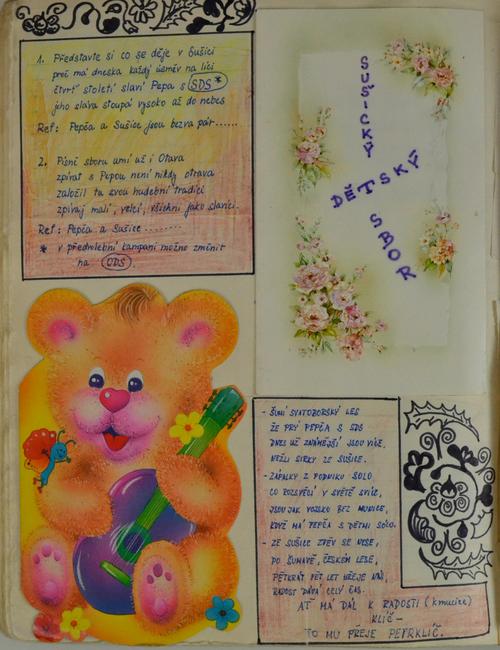 1. Představte si co se děje v Sušici
proč má dneska každý úsměv na líci
čtvrt století slaví Pepa s SDS *
jeho sláva stoupá vysoko až do nebes
Ref: Pepča a Sušice jsou bezva pár......
2. Písně sboru umí už i Otava
zpívat s Pepou není nikdy otrava
založil tu svou hudební tradici
zpívají malí, velcí, všichni jako slavíci.
Ref: Pepča a Sušice ........
* v předvolební kampani možno změnit
na ODS.
SUŠICKÝ
DĚTSKÝ
SBOR
- ŠUMÍ SVATOBORSKÝ LES
ŽE PRÝ PEPČA S SDS
DNES UŽ ZNÁMĚJŠÍ JSOU VÍCE,
NEŽLI SIRKY ZE SUŠICE.
- ZÁPALKY Z PODNIKU SOLO
CO ROZSVĚCÍ V SVĚTĚ SVÍCE,
JSOU JAK VOJSKO BEZ MUNICE,
KDYŽ MÁ PEPČA S DĚTMI SÓLO.
- ZE SUŠICE ZPĚV SE NESE,
PO ŠUMAVĚ, ČESKÉM LESE,
PĚTKRÁT PĚT LET HŘEJE NÁS,
RADOST DÁVÁ CELÝ ČAS.
AŤ MÁ DÁL K RADOSTI (k muzice)
KLÍČ -
TO MU PŘEJE PETRKLÍČ.